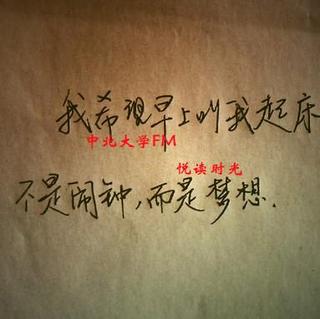 我希望早上叫我起床
中北大学FM
悦读时光
不是闹钟，而是梦想．